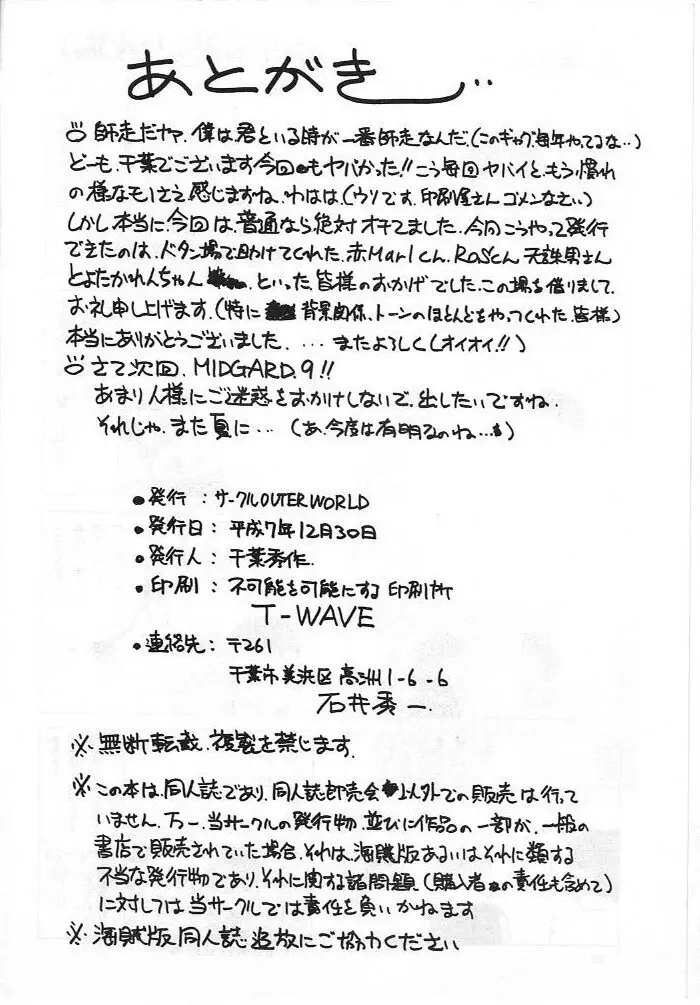 あとがき..
師走だヤァ. 僕は君といる時が一番師走なんだ.(このギャグ毎年やってるな..)
どーも.千葉でございます今回もヤバかった!!こう毎回ヤバイと.もう慣れ
の様なモノさえ感じますね.わはは.(ウソです.印刷屋さんゴメンなさい)
しかし本当に.今回は.普通なら絶対オチてました.今回こうやって発行
できたのは.ドタン場で助けてくれた.赤Marlくん.ROSくん 天誅男さん
とよたかれんちゃん .といった皆様のおかげでした.この場を借りまして.
お礼申し上げます.(特に 背景関係、トーンのほとんどをやってくれた.皆様)
本当にありがとうございました. ...またよろしく(オイオイ!!)
さて次回. MIDGARD.9!!
あまり人様にご迷惑をおかけしないで.出したいですね.
それじゃ.また夏に... (あ.今度は有明なのね...)
●発行 : サークルOUTER WORLD
●発行日: 平成7年12月30日
●発行人: 千葉秀作.
●印刷 : 不可能を可能にする 印刷所
T-WAVE
●連絡先: 〒261
千葉市美浜区高洲1-6-6
石井秀一.
※無断転載.複製を禁じます.
※この本は.同人誌であり.同人誌即売会以外での販売は行って
いません.万一.当サークルの発行物.並びに作品の一部が.一般の
書店で販売されていた場合.それは.海賊版あるいはそれに類する
不当な発行物であり.それに関する諸問題(購入者の責任も含めて)
に対しては当サークルでは責任を負いかねます
※海賊版同人誌追放にご協力ください